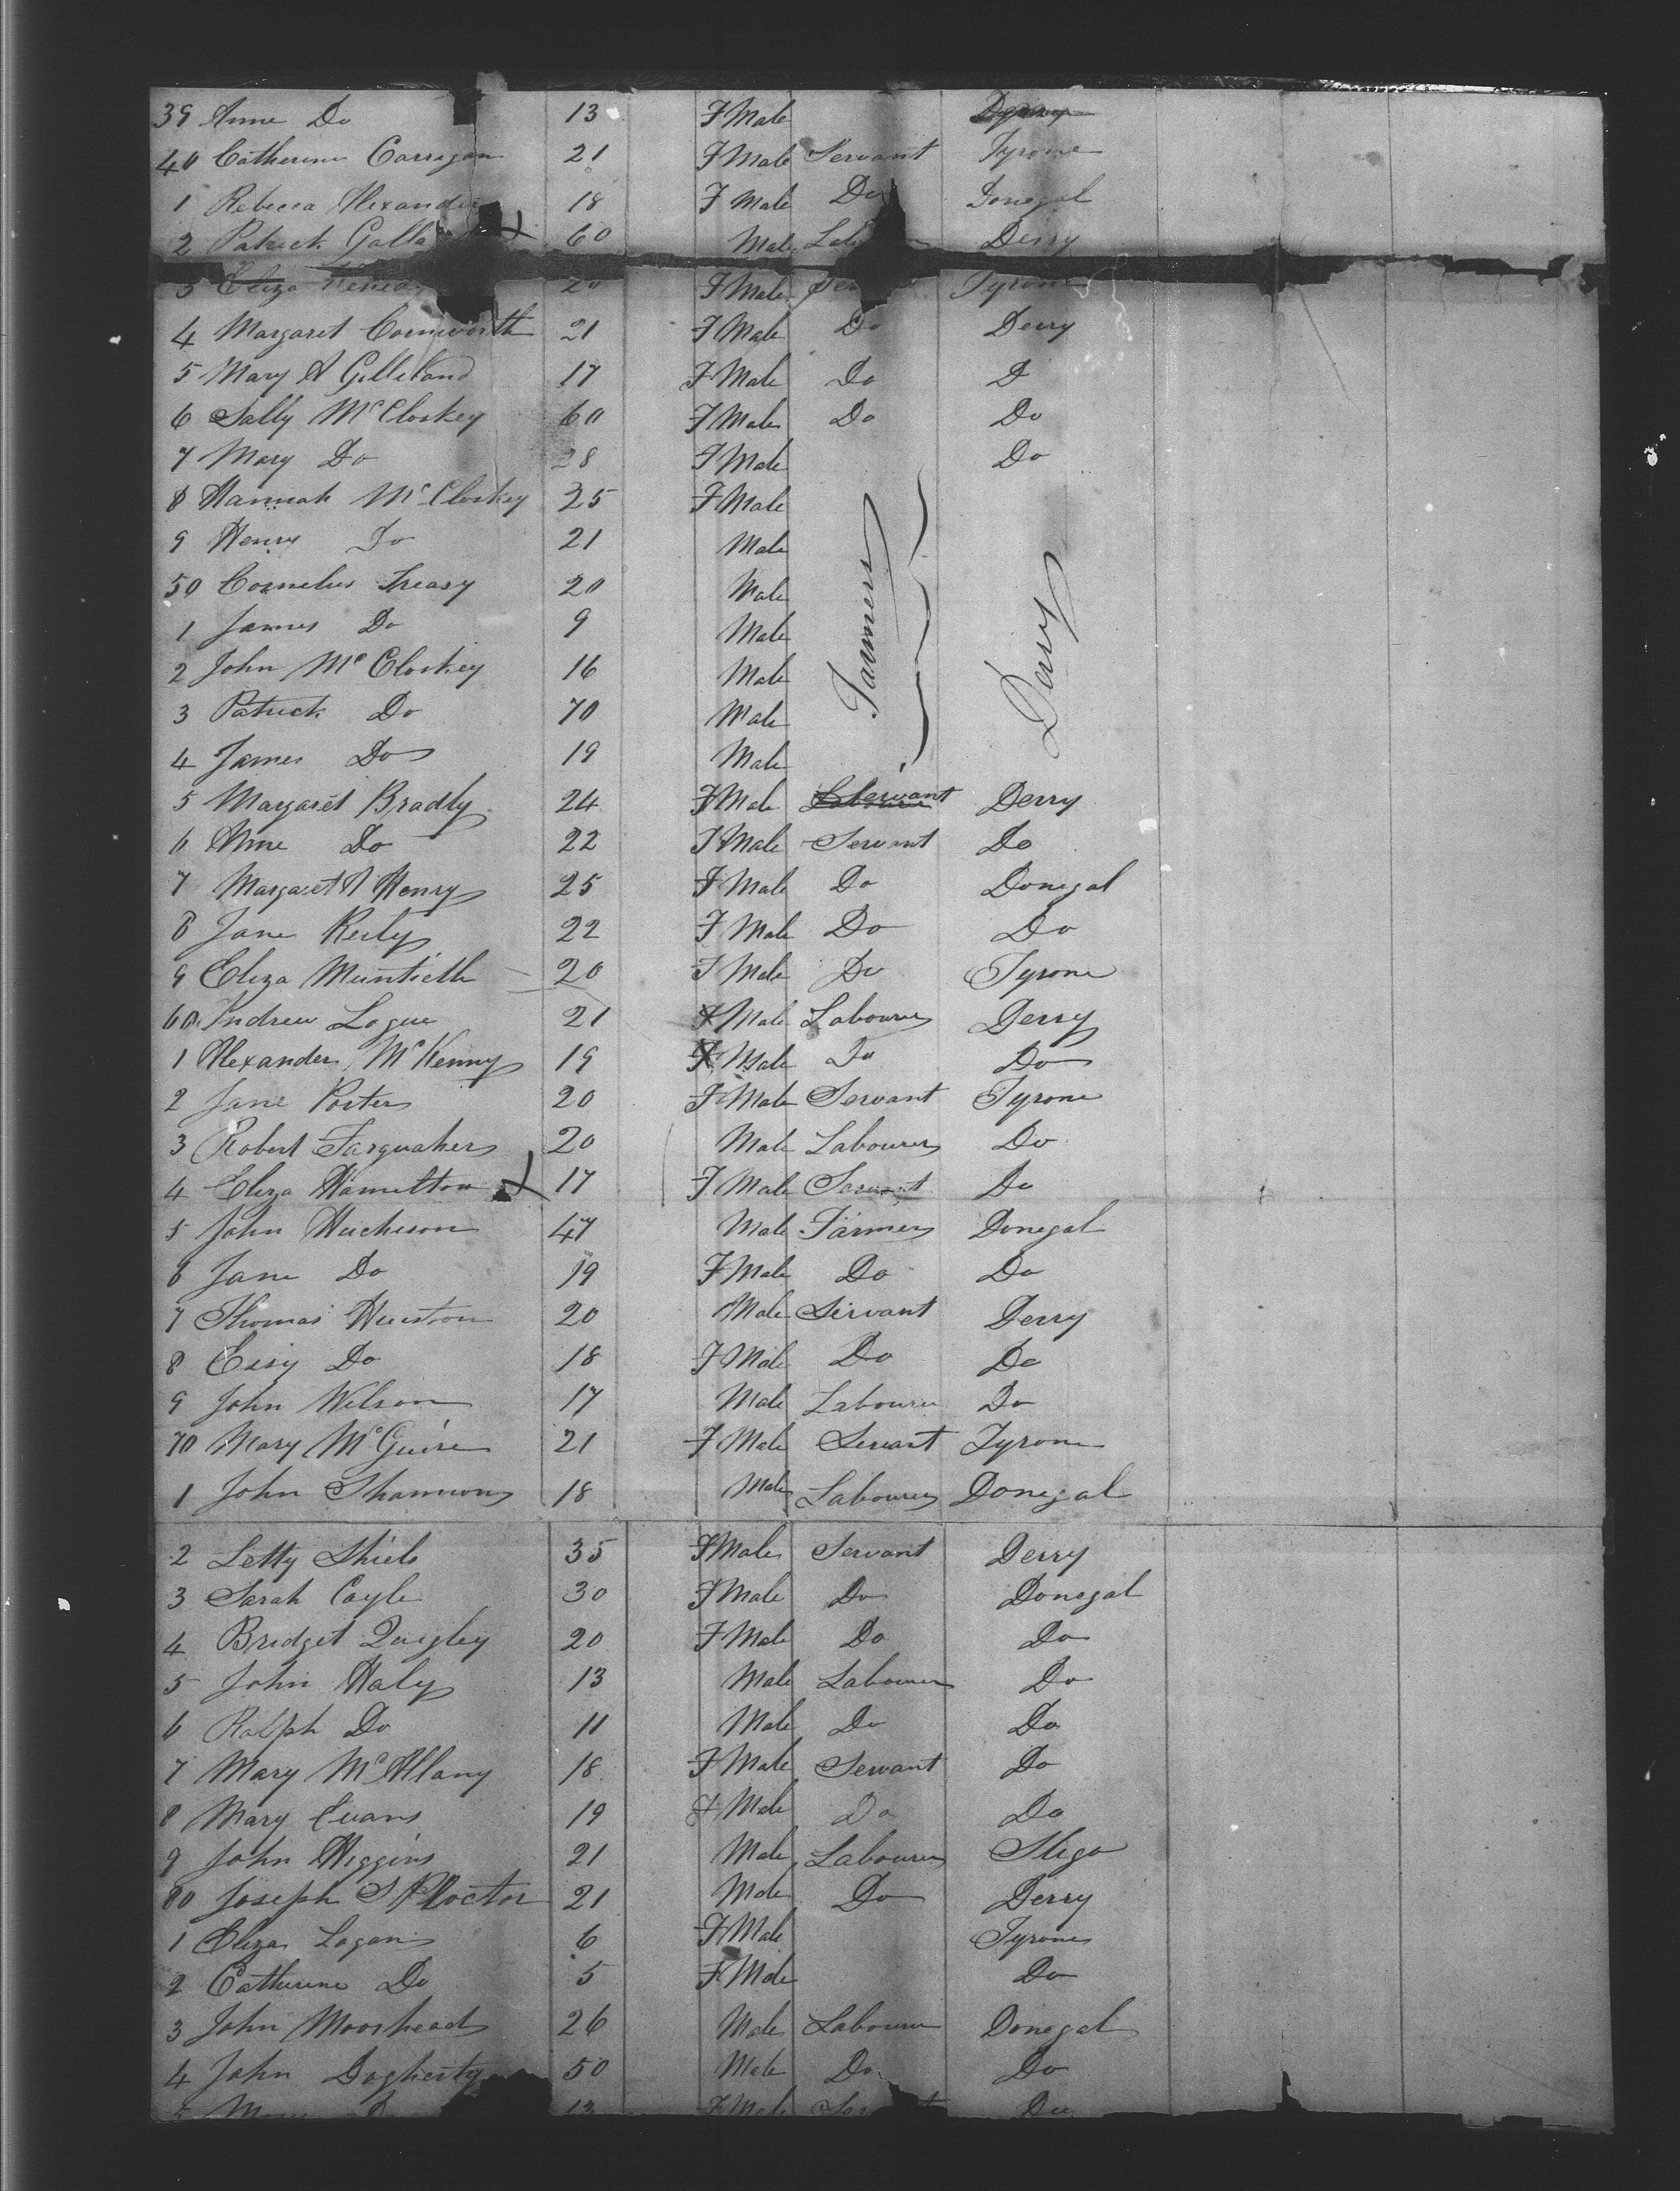 39 Anne Do 13 F Male Derry
40 Catherine Carrigan 21 F Male Servant Tyrone
1 Rebecca Alexander 18 F Male Do Donegal
2 Patrick Galla 60 Male Lab Derry
3 Eliza 20 F Male Ser Tyrone
4 Margaret Cornworth 21 F Male Do Derry
5 Mary A Gilleland 17 F Male Do D
6 Sally McCloskey 60 F Male Do Do
7 Mary Do 28 F Male Do
8 Hannah McCloskey 25 F Male
9 Henry Do 21 Male
50 Cornelius Treasy 20 Male
1 James Do 9 Male
2 John McCloskey 16 Male
3 Patrick Do 70 Male
4 James Do 19 Male
Farmers Derry
5 Margaret Bradly 24 F Male Servant Derry
6 Anne Do 22 F Male Servant Do
7 Margaret A Henry 25 F Male Do Donegal
8 Jane Reily 22 F Male Do Do
9 Eliza 20 F Male Do Tyrone
60 Andrew Logue 21 Male Labourer Derry
1 Alexander McKenny 19 Male Do Do
2 Jane Porter 20 F Male Servant Tyrone
3 Robert Farquaher 20 Male Labourer Do
4 Eliza Hamilton 17 F Male Servant Do
5 John Hucheson 47 Male Farmer Donegal
6 Jane Do 19 F Male Do Do
7 Thomas Huston 20 Male Servant Derry
8 Essy Do 18 F Male Do Do
9 John Wilson 17 Male Labourer Do
70 Mary McGuire 21 F Male Servant Tyrone
1 John Shannon 18 Male Labourer Donegal
2 Letty Shiels 35 F Male Servant Derry
3 Sarah Coyle 30 F Male Do Donegal
4 Bridget Quigley 20 F Male Do Do
5 John Haly 13 Male Labourer Do
6 Ralph Do 11 Male Do Do
7 Mary McAllany 18 F Male Servant Do
8 Mary Evans 19 F Male Do Do
9 John Higgins 21 Male Labourer Sligo
80 Joseph S Proctor 21 Male Do Derry
1 Eliza Logan 6 F Male Tyrone
2 Catherine Do 5 F Male Do
3 John Moorhead 26 Male Labourer Donegal
4 John Dogherty 50 Male Do Do
5 Mary D 13 F Male Ser Do